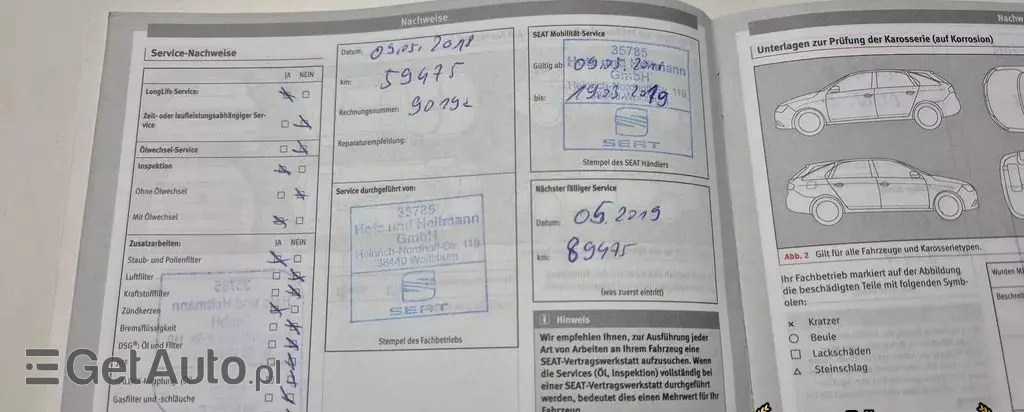 Nachweise
Service-Nachweise
JA NEIN
LongLife Service:
Zeit- oder laufleistungsabhängiger Ser-
vice
Ölwechsel-Service
Inspektion
Ohne Ölwechsel
Mit Ölwechsel
Zusatzarbeiten:
JA NEIN
Staub- und Pollenfilter
Luftfilter
Kraftstofffilter
Zündkerzen
Bremsflüssigkeit
DSG®: Öl und Filter
Gasfilter und -schläuche
GetAuto.pl
Datum: 09.05.2018
km: 59475
Rechnungsnummer:
Reparaturempfehlung:
Service durchgeführt von:
35785
Holz und Heitmann
GmbH
Heinrich-Nordhoff-Str. 119
38440 Wolfsburg
SEAT
Stempel des Fachbetriebs
SEAT Mobilität-Service
35785
Gültig ab:
GmbH
bis:
SEAT
Stempel des SEAT Händlers
Nächster fälliger Service
Datum: 05.2019
km: 89475
(was zuerst eintritt)
Hinweis
Wir empfehlen Ihnen, zur Ausführung jeder
Art von Arbeiten an Ihrem Fahrzeug eine
SEAT-Vertragswerkstatt aufzusuchen. Wenn
die Services (Öl, Inspektion) vollständig bei
einer SEAT-Vertragswerkstatt durchgeführt
werden, bedeutet dies einen Mehrwert für Ihr
Fahrzeug.
Unterlagen zur Prüfung der Karosserie (auf Korrosion)
Abb. 2 Gilt für alle Fahrzeuge und Karosserietypen.
Ihr Fachbetrieb markiert auf der Abbildung
die beschädigten Teile mit folgenden Symb-
olen:
x Kratzer
Beule
Lackschäden
Steinschlag